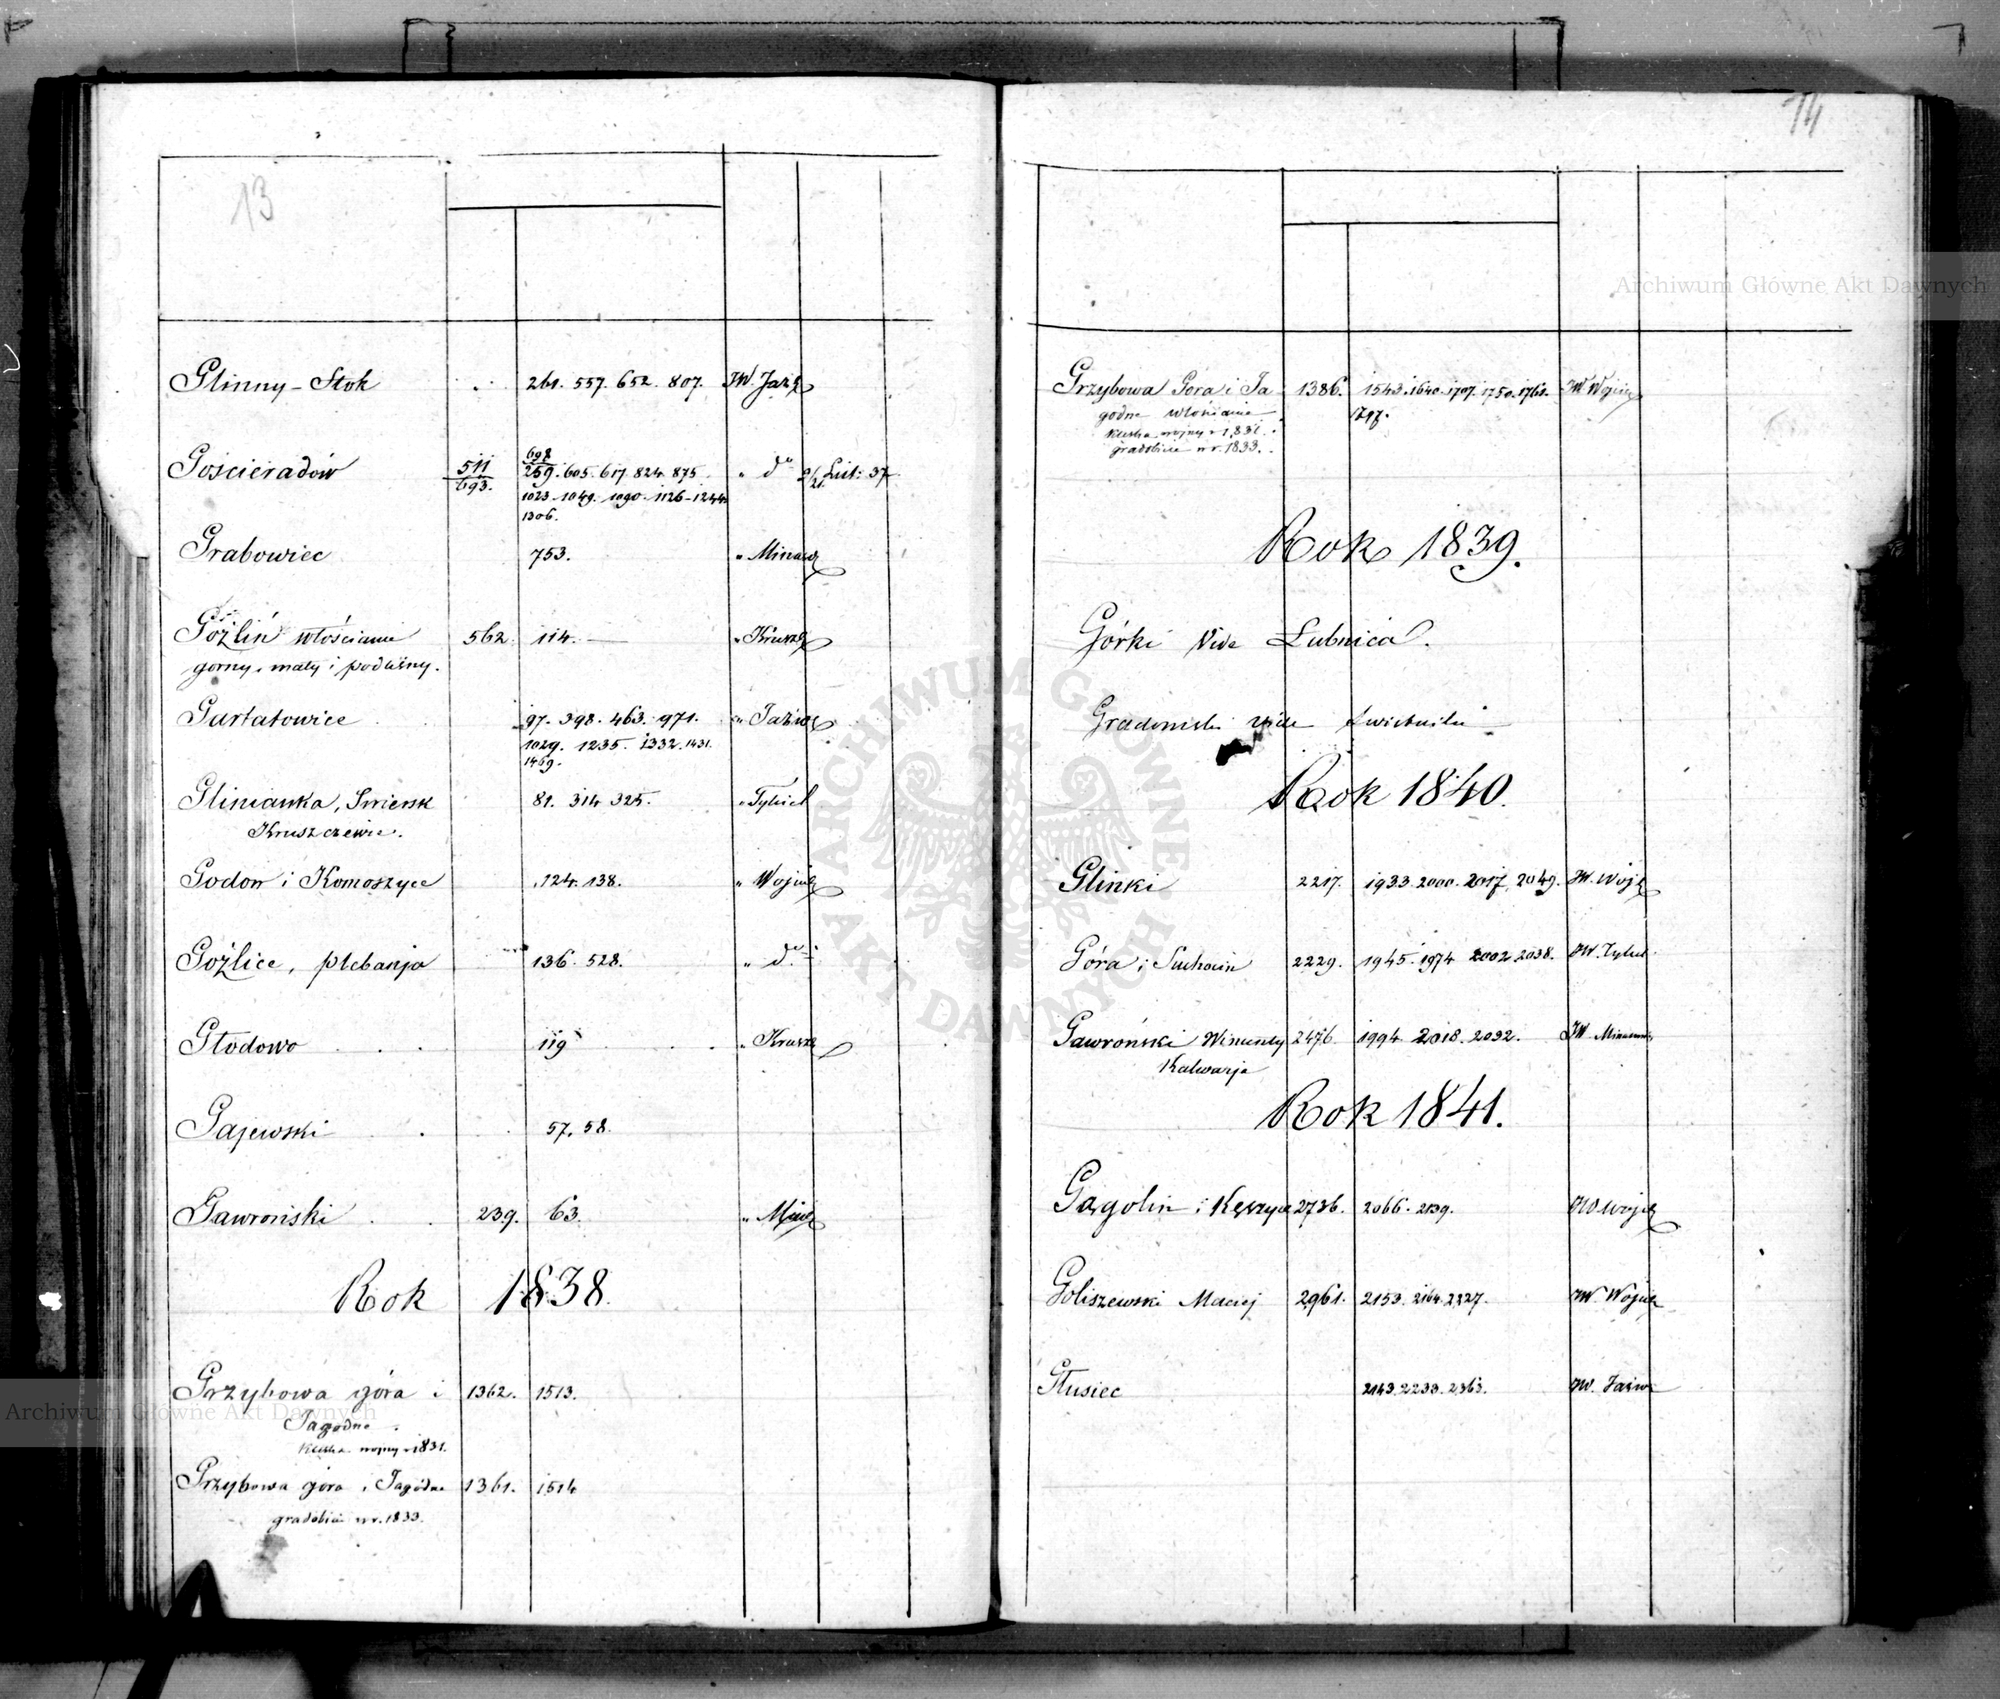 13
Glinny-Stok 261. 557. 652. 807. JW. Jaź
698
Gościeradów 511 259. 605. 617. 824. 875. " do 9/21 List: 37
693. 1023. 1049. 1090. 1126. 1244.
1306.
Grabowiec 753. "
Goźlin włościanie 562. 114. " Krusz
gorny, mały i podleśny.
Gurtatowice 97. 398. 463. 971. " Jaźw
1029. 1235. 1332. 1431.
1469.
Glinianka, 81. 314. 325. "
Kruszczewie.
Godon i Komoszyce 124. 138. " Wojcic
Goźlice, plebanja 136. 528. " do
Głodowo 119 " Krusz
Gajewski 57. 58.
Gawroński 239. 63. "
Rok 1838.
Grzybowa góra i 1362. 1513.
Jagodne
klęska wojny r 1831.
Grzybowa góra i Jagodne 1361. 1514
gradobicie w r. 1833.
14
Grzybowa Góra i Ja 1386. 1543. 1640. 1707. 1750. 1761. JW
godne włościanie 1797.
klęska wojny r 1831.
gradobicie w r. 1833.
Rok 1839.
Górki Vide Lubnica.
vide
Rok 1840.
Glinki 2217. 1933. 2000. 2017. 2049. JW. Wojc
Góra i Suchocin 2229. 1945. 1974 2002 2038. JW.
Gawroński Wincenty 2476 1994 2018. 2032. JW
Kalwarja
Rok 1841.
Gągolin i Kęszyce 2736. 2066. 2139. JW Wojc
Goliszewski Maciej 2961. 2153. 2164. 2227. JW. Wojcic
Głusiec 2143. 2233. 2363. JW. Jaźw
Archiwum Główne Akt Dawnych
Archiwum Główne Akt Dawnych
ARCHIWUM GŁÓWNE AKT DAWNYCH